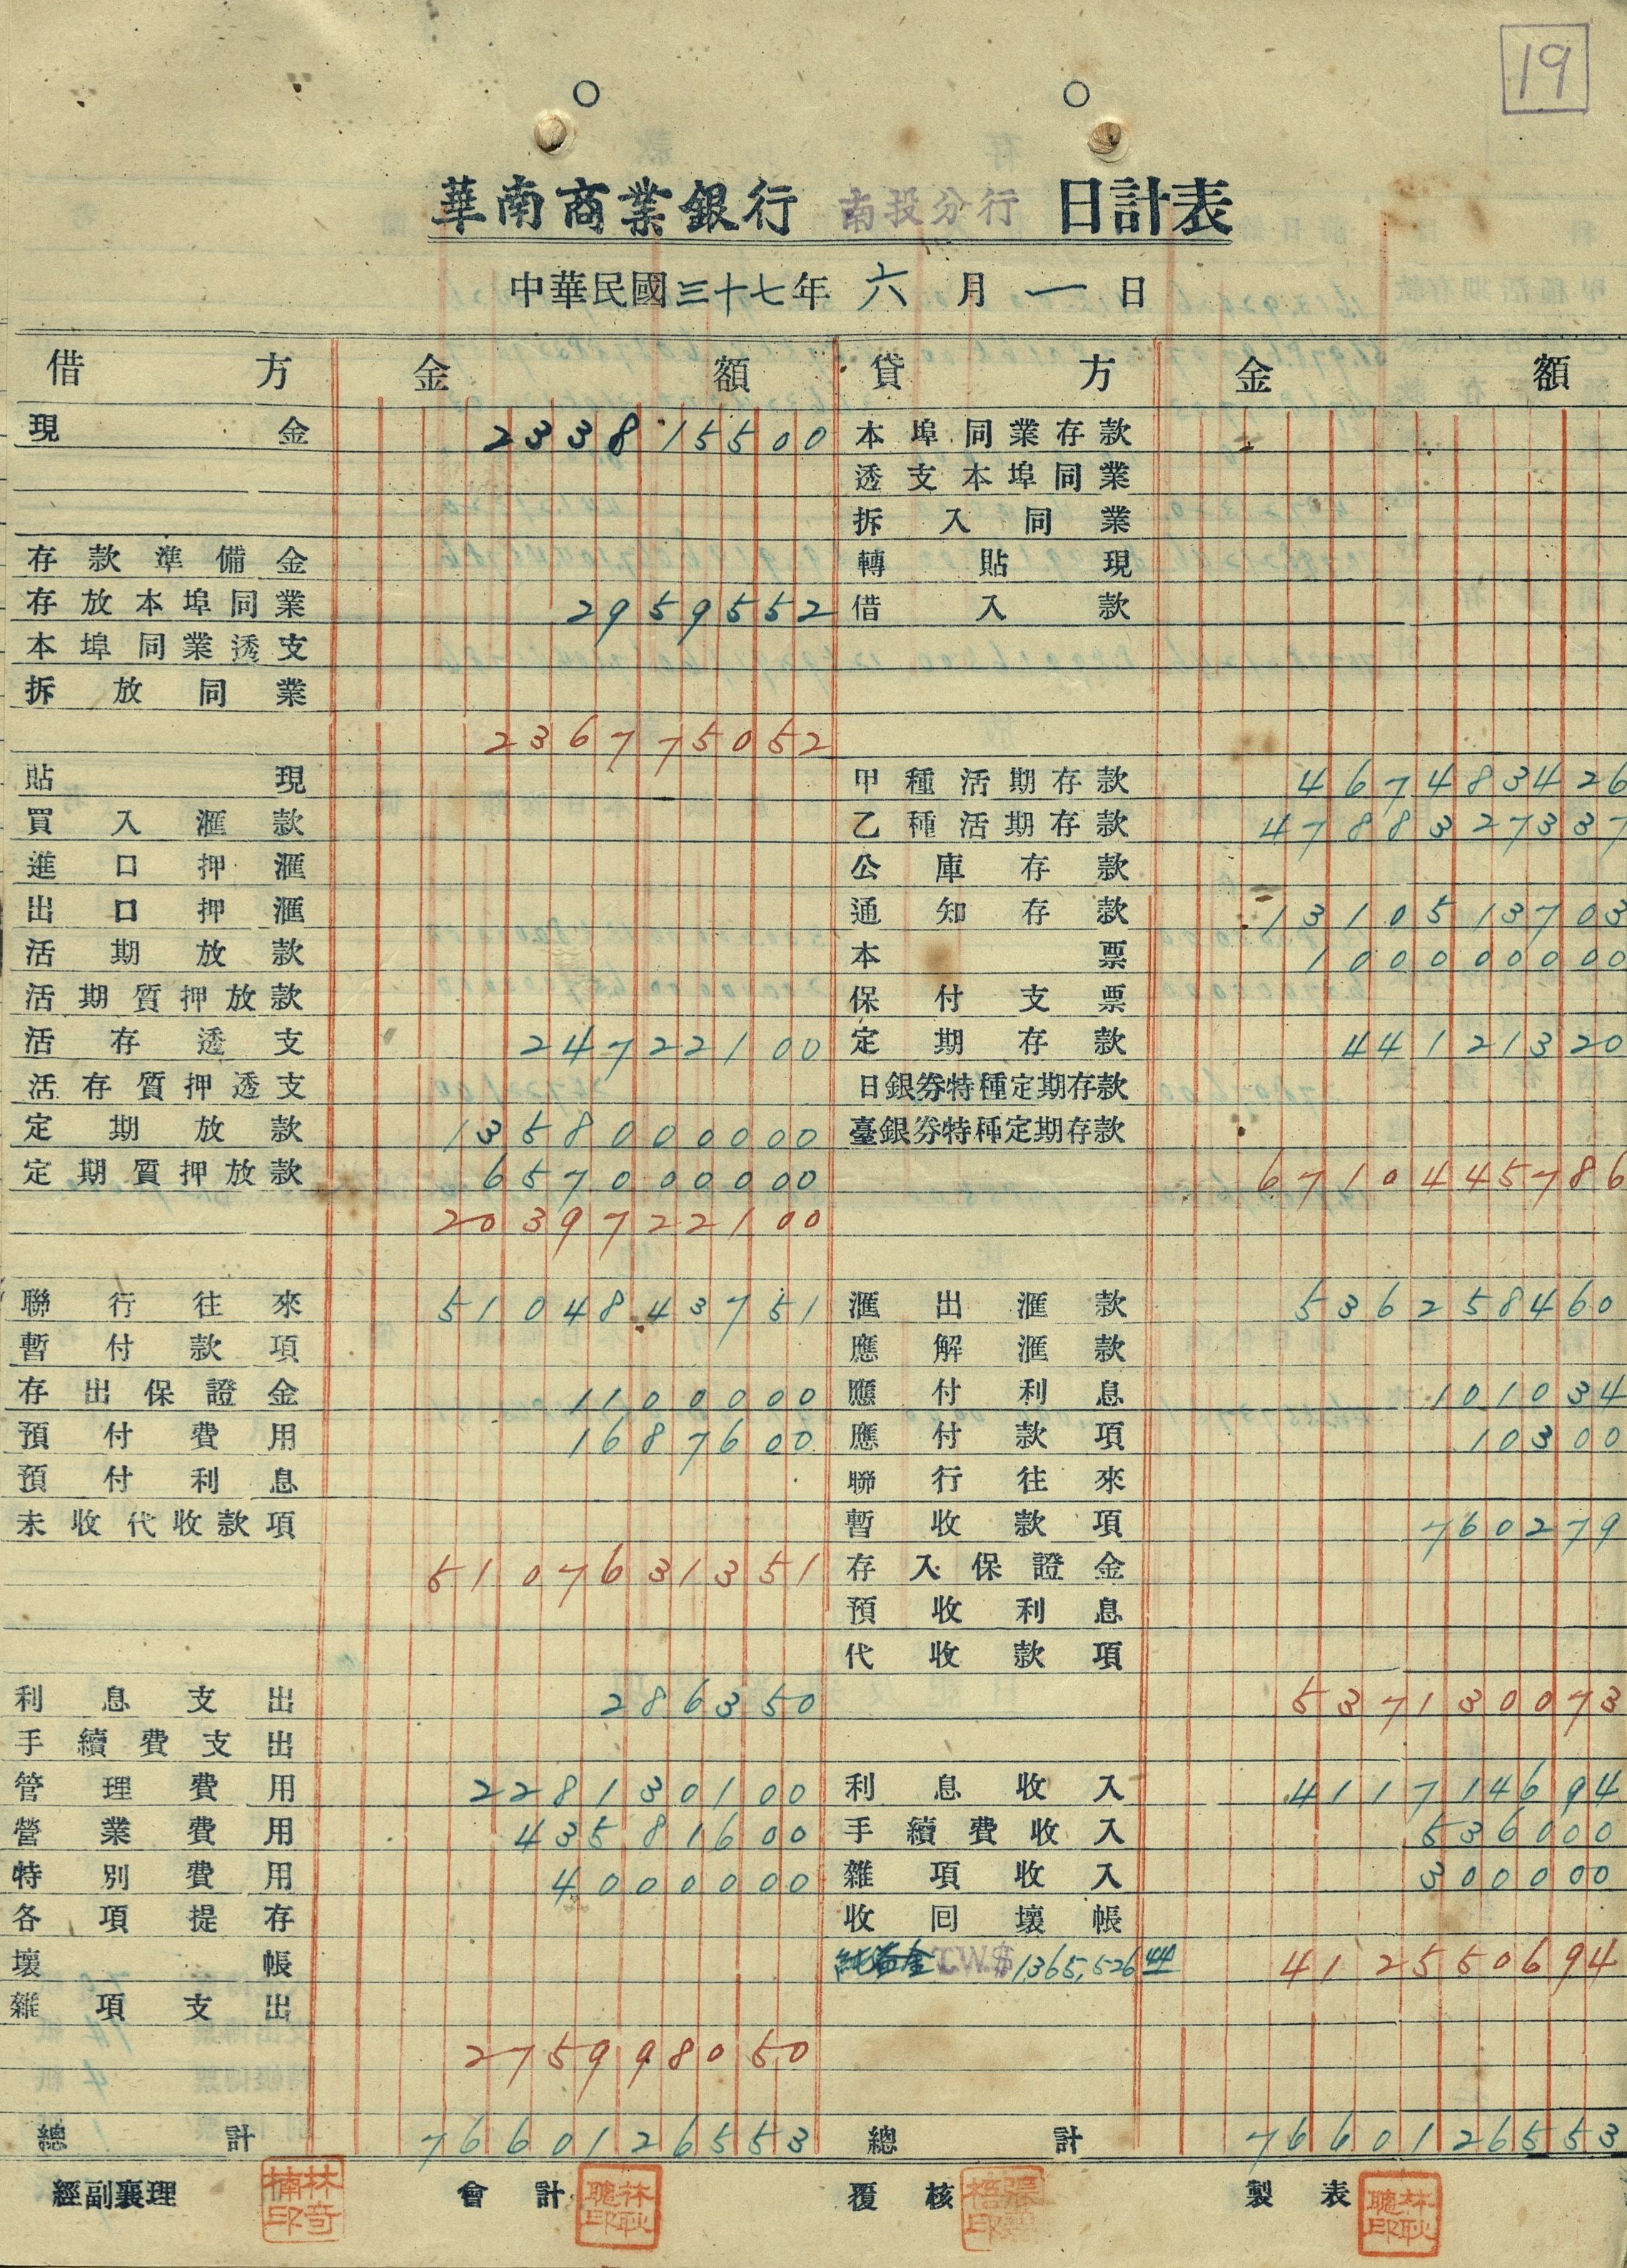 19
華南商業銀行 南投分行 日計表
中華民國三十七年 六 月 一 日
借方 金額 貸方 金額
現金 2338155 00 本埠同業存款
透支本埠同業
拆入同業
存款準備金 轉貼現
存放本埠同業 29595 52 借入款
本埠同業透支
拆放同業
2367750 52
貼現 甲種活期存款 4674834 26
買入滙款 乙種活期存款 47883273 37
進口押滙 公庫存款
出口押滙 通知存款 13105137 03
活期放款 本票 1000000 00
活期質押放款 保付支票
活存透支 247221 00 定期存款 441213 20
活存質押透支 日銀券特種定期存款
定期放款 13580000 00 臺銀券特種定期存款
定期質押放款 6570000 00 67104457 86
20397221 00
聯行往來 51048437 51 滙出滙款 5362584 60
暫付款項 應解滙款
存出保證金 11000 00 應付利息 1010 34
預付費用 16876 00 應付款項 103 00
預付利息 聯行往來
未收代收款項 暫收款項 7602 79
51076313 51 存入保證金
預收利息
代收款項
利息支出 2863 50 5371300 73
手續費支出
管理費用 2281301 00 利息收入 4117146 94
營業費用 435816 00 手續費收入 5360 00
特別費用 40000 00 雜項收入 3000 00
各項提存 收囘壞帳
壞帳 純益金 T.W.$ 1,365,526 44 4125506 94
雜項支出
2759980 50
總計 76601265 53 總計 76601265 53
經副襄理 林奇楠印 會計 林耿聰印 覆核 製表 林耿聰印